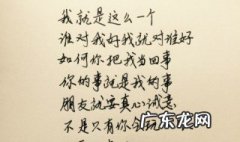 我就是这么一个
谁对我好我就对谁好
如何你把我当回事
你的事就是我的事
朋友就要真心诚意
不是只有你会玩
广东龙网